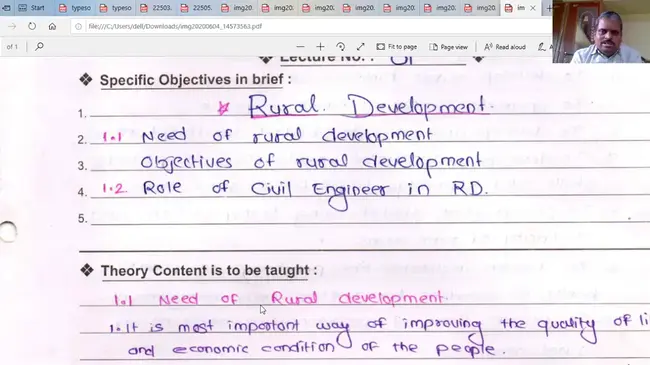 Start
typeso
typeso
22503.
22505.
img202
img20
img20
img20
img20
img202
img20
img20
im
file:///C:/Users/dell/Downloads/img20200604_14573563.pdf
of 1
Fit to page
Page view
Read aloud
Add no
Lecture No. : 01
❖ Specific Objectives in brief :
1. Rural Development.
2. 1.1 Need of rural development
3. Objectives of rural development
4. 1.2 Role of Civil Engineer in RD.
5.
❖ Theory Content is to be taught :
1.1 Need of Rural development.
1. It is most important way of improving the quality of
and economic condition of the people.